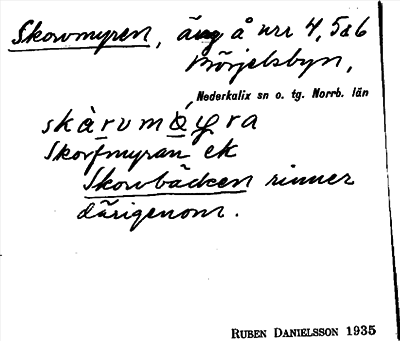 Skorvmyren, äng å nrr 4, 5 & 6
Börjelsbyn,
Nederkalix sn o. tg. Norrb. län
Skorfmyran ek
Skorvbäcken rinner
därigenom.
RUBEN DANIELSSON 1935